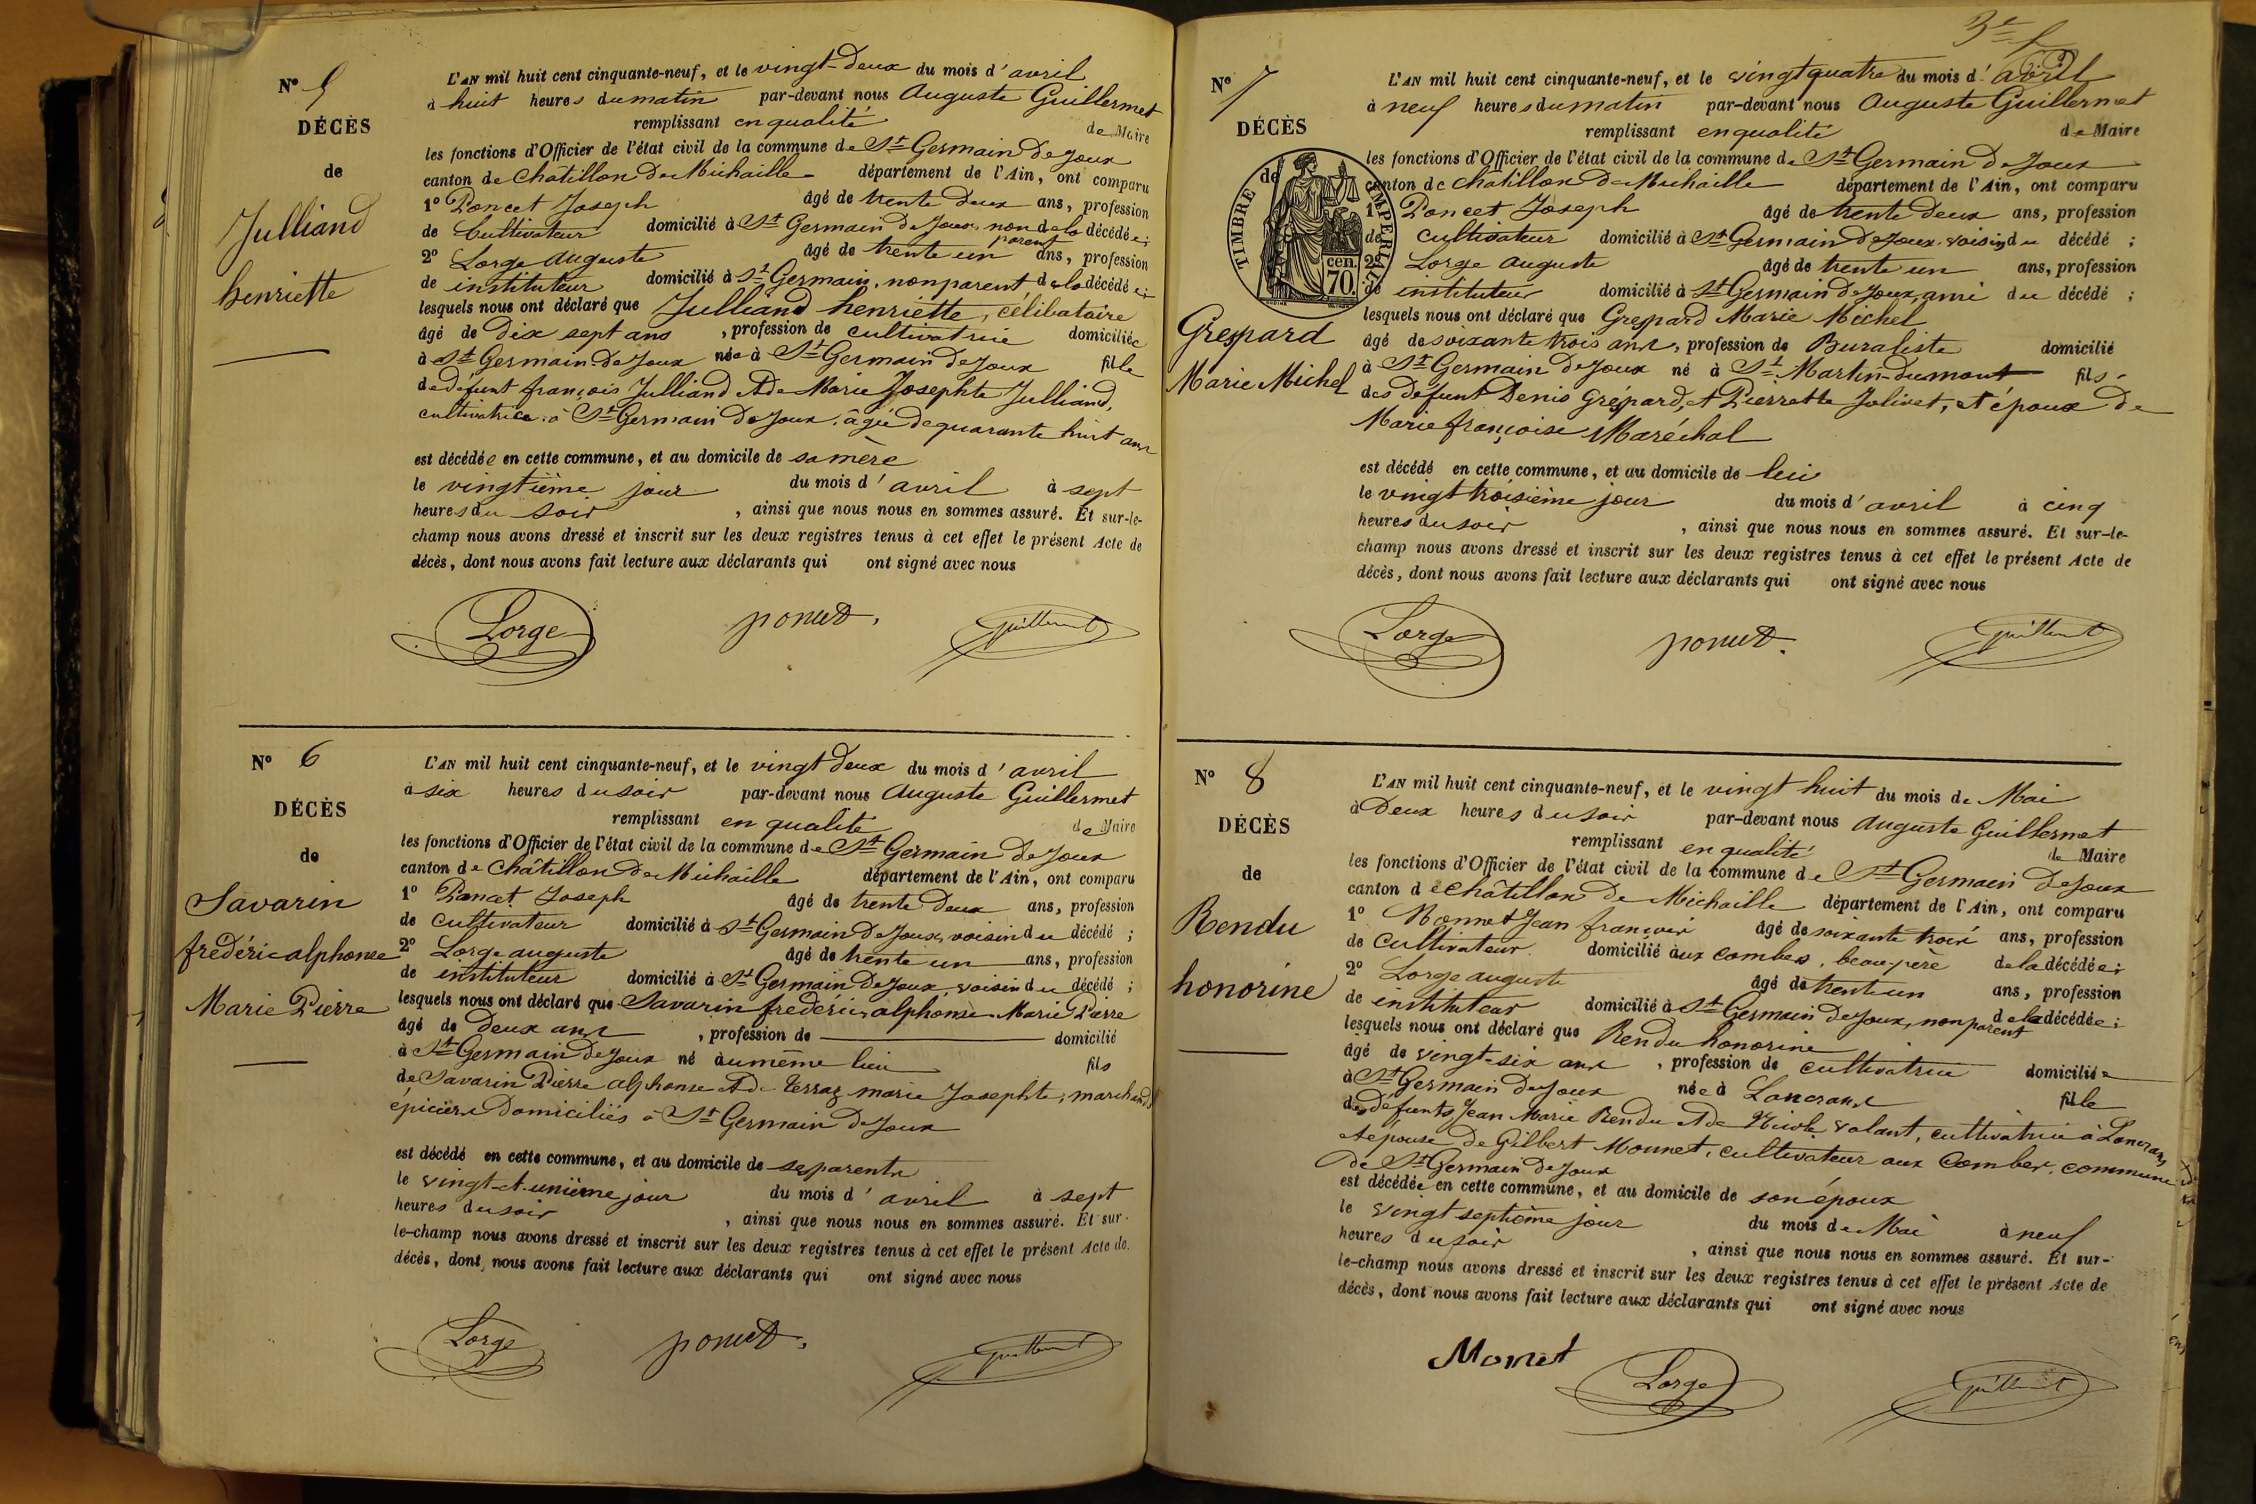 N° 5
DÉCÈS
de
Julliand
henriette
L'AN mil huit cent cinquante-neuf, et le vingt-Deux du mois d'avril
à huit heures du matin par-devant nous Auguste Guillermet
remplissant en qualité de Maire
les fonctions d'Officier de l'état civil de la commune de St Germain De Joux
canton de Chatillon De Michaille département de l'Ain, ont comparu
1° Poncet Joseph âgé de trente Deux ans, profession
de Cultivateur domicilié à St Germain De Joux, non parent de la décédée;
2° Lorge Auguste âgé de trente un ans, profession
de instituteur domicilié à St Germain, non parent de la décédée;
lesquels nous ont déclaré que Julliand henriette, célibataire
âgé de Dix sept ans, profession de cultivatrice domiciliée
à St Germain-De Joux née à St Germain De Joux fille
de défunt françois Julliand et de Marie Josephte Julliand,
cultivatrice à St Germain De Joux, âgée de quarante huit ans
est décédée en cette commune, et au domicile de sa mère
le vingtième jour du mois d'avril à sept
heures du soir, ainsi que nous nous en sommes assuré. Et sur-le-
champ nous avons dressé et inscrit sur les deux registres tenus à cet effet le présent Acte de
décès, dont nous avons fait lecture aux déclarants qui ont signé avec nous
Lorge poncet. Guillermet
N° 6
DÉCÈS
de
Savarin
frédéric alphonse
Marie Pierre
L'AN mil huit cent cinquante-neuf, et le vingt Deux du mois d'avril
à six heures du soir par-devant nous Auguste Guillermet
remplissant en qualité de Maire
les fonctions d'Officier de l'état civil de la commune de St Germain De Joux
canton de Châtillon De Michaille département de l'Ain, ont comparu
1° Poncet Joseph âgé de trente Deux ans, profession
de cultivateur domicilié à St Germain De Joux, voisin du décédé;
2° Lorge auguste âgé de trente un ans, profession
de instituteur domicilié à St Germain De Joux, voisin du décédé;
lesquels nous ont déclaré que Savarin frédéric alphonse Marie Pierre
âgé de Deux ans, profession de domicilié
à St Germain De Joux né au même lieu fils
de Savarin Pierre alphonse et de Terraz marie Josephte, marchands
épiciers Domiciliés à St Germain De Joux
est décédé en cette commune, et au domicile de ses parents
le vingt-et-unième jour du mois d'avril à sept
heures du soir, ainsi que nous nous en sommes assuré. Et sur-
le-champ nous avons dressé et inscrit sur les deux registres tenus à cet effet le présent Acte de
décès, dont nous avons fait lecture aux déclarants qui ont signé avec nous
Lorge poncet. Guillermet
N° 7
DÉCÈS
de
TIMBRE IMPERIAL
70 cen.
Greppard
Marie Michel
L'AN mil huit cent cinquante-neuf, et le vingt quatre du mois d'avril
à neuf heures du matin par-devant nous Auguste Guillermet
remplissant en qualité de Maire
les fonctions d'Officier de l'état civil de la commune de St Germain De Joux
canton de Châtillon De Michaille département de l'Ain, ont comparu
1° Poncet Joseph âgé de trente Deux ans, profession
de cultivateur domicilié à St Germain De Joux voisin du décédé;
2° Lorge Auguste âgé de trente un ans, profession
de instituteur domicilié à St Germain De Joux, ami du décédé;
lesquels nous ont déclaré que Greppard Marie Michel
âgé de soixante trois ans, profession de Buraliste domicilié
à St Germain De Joux né à St Martin-Dumont fils
des défunt Denis Greppard, et Pierrette Jolivet, et époux De
Marie françoise Maréchal
est décédé en cette commune, et au domicile de lui
le vingt troisième jour du mois d'avril à cinq
heures du soir, ainsi que nous nous en sommes assuré. Et sur-le-
champ nous avons dressé et inscrit sur les deux registres tenus à cet effet le présent Acte de
décès, dont nous avons fait lecture aux déclarants qui ont signé avec nous
Lorge poncet. Guillermet
N° 8
DÉCÈS
de
Rendu
honorine
L'AN mil huit cent cinquante-neuf, et le vingt huit du mois de Mai
à Deux heures du soir par-devant nous Auguste Guillermet
remplissant en qualité de Maire
les fonctions d'Officier de l'état civil de la commune de St Germain De Joux
canton de Châtillon De Michaille département de l'Ain, ont comparu
1° Monnet Jean françois âgé de soixante trois ans, profession
de cultivateur domicilié aux combes, beau-père de la décédée;
2° Lorge auguste âgé de trente un ans, profession
de instituteur domicilié à St Germain De Joux, non parent de la décédée;
lesquels nous ont déclaré que Rendu honorine
âgé de vingt-six ans, profession de cultivatrice domiciliée
à St Germain De Joux née à Lancrans fille
des défunts Jean Marie Rendu et de Nicole Volant, cultivatrice à Lancrans
et épouse de Gilbert Monnet, cultivateur aux Combes, commune
De St Germain De Joux
est décédée en cette commune, et au domicile de son époux
le vingt septième jour du mois de Mai à neuf
heures du soir, ainsi que nous nous en sommes assuré. Et sur-
le-champ nous avons dressé et inscrit sur les deux registres tenus à cet effet le présent Acte de
décès, dont nous avons fait lecture aux déclarants qui ont signé avec nous
Monet Lorge Guillermet